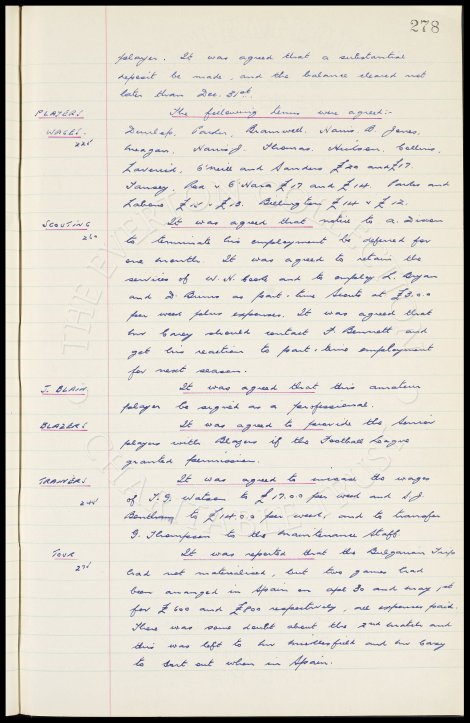 278
player. It was agreed that a substantial
deposit be made, and the balance cleared not
later than Dec. 31st.
PLAYERS The following terms were agreed:-
WAGES. Dunlop, Parker, Bramwell, Harris B. Jones,
226 Meagan, Harris J. Thomas, Collins,
Laverick, O'Neill and Sanders £20 and £17
Tansey, Rea & O'Hara £17 and £14. and
Labone £15 & £13. Billington £14 & £12.
SCOUTING It was agreed that notice to a. Dixon
260 to terminate his employment be deferred for
one month. It was agreed to retain the
services of W. H. Cook and to employ L. Bryan
and D. Burns as part-time Scouts at £3.0.0
per week plus expenses. It was agreed that
Mr Carey should contact F. Bennett and
get his reaction to part-time employment
for next season.
J. BLAIN. It was agreed that this amateur
player be signed as a professional.
BLAZERS It was agreed to provide the Senior
players with Blazers if the Football League
granted permission.
TRAINERS It was agreed to increase the wages
244 of T.G. Watson to £17.00 per week and S.J.
Bentham to £14.00 per week, and to transfer
G. Thompson to the maintenance Staff
TOUR It was reported that the Bulgarian Trip
276 had not materialised, but two games had
been arranged in Spain on Apl 30 and May 1st
for £600 and £800 respectively, all expenses paid.
There was some doubt about the 2nd match and
this was left to Mr and Mr Carey
to sort out when in Spain.